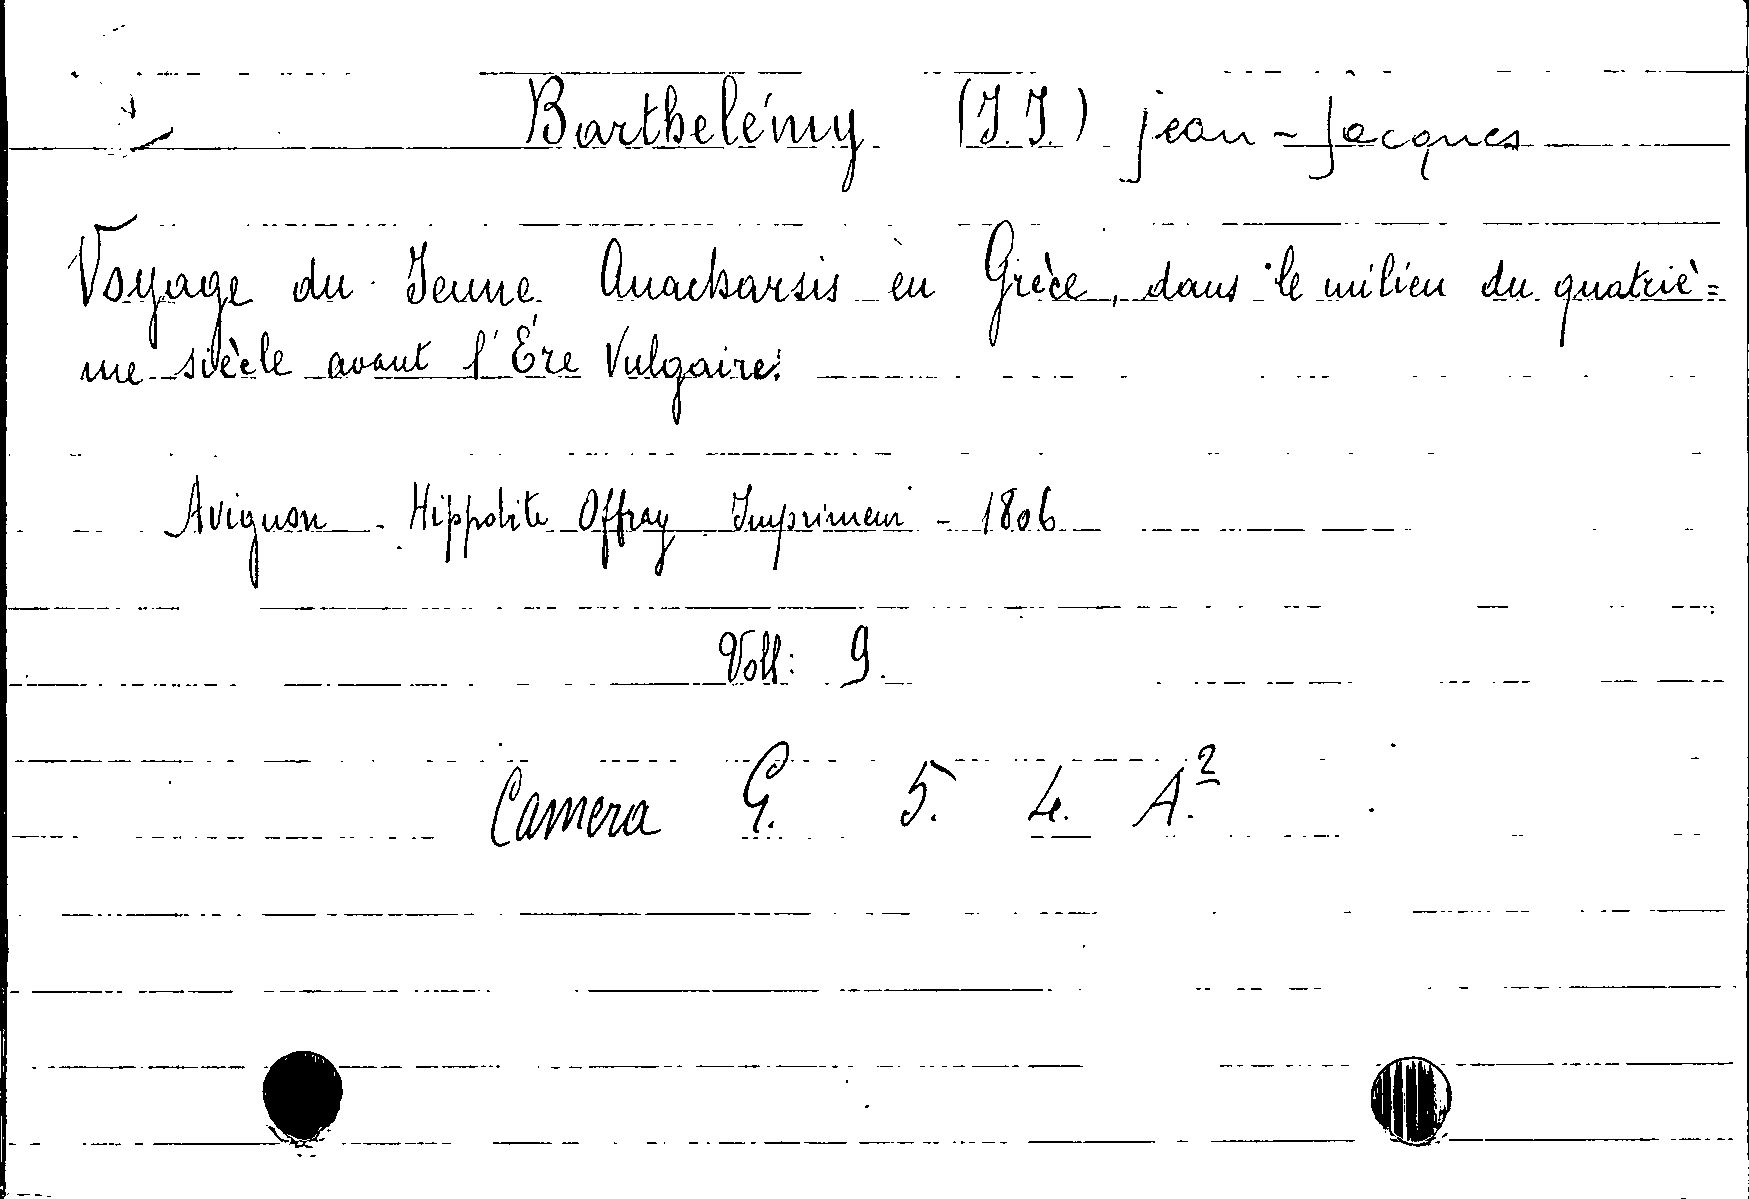 Barthelémy (J.J.) jean-Jacques
Voyage du Jeune Anacharsis en Grèce, dans le milieu du quatriè=
me siècle avant l'Ére Vulgaire.
Avignon - Hippolite Offray Imprimeur - 1806
Voll: 9.
Camera G. 5. 4. A.²